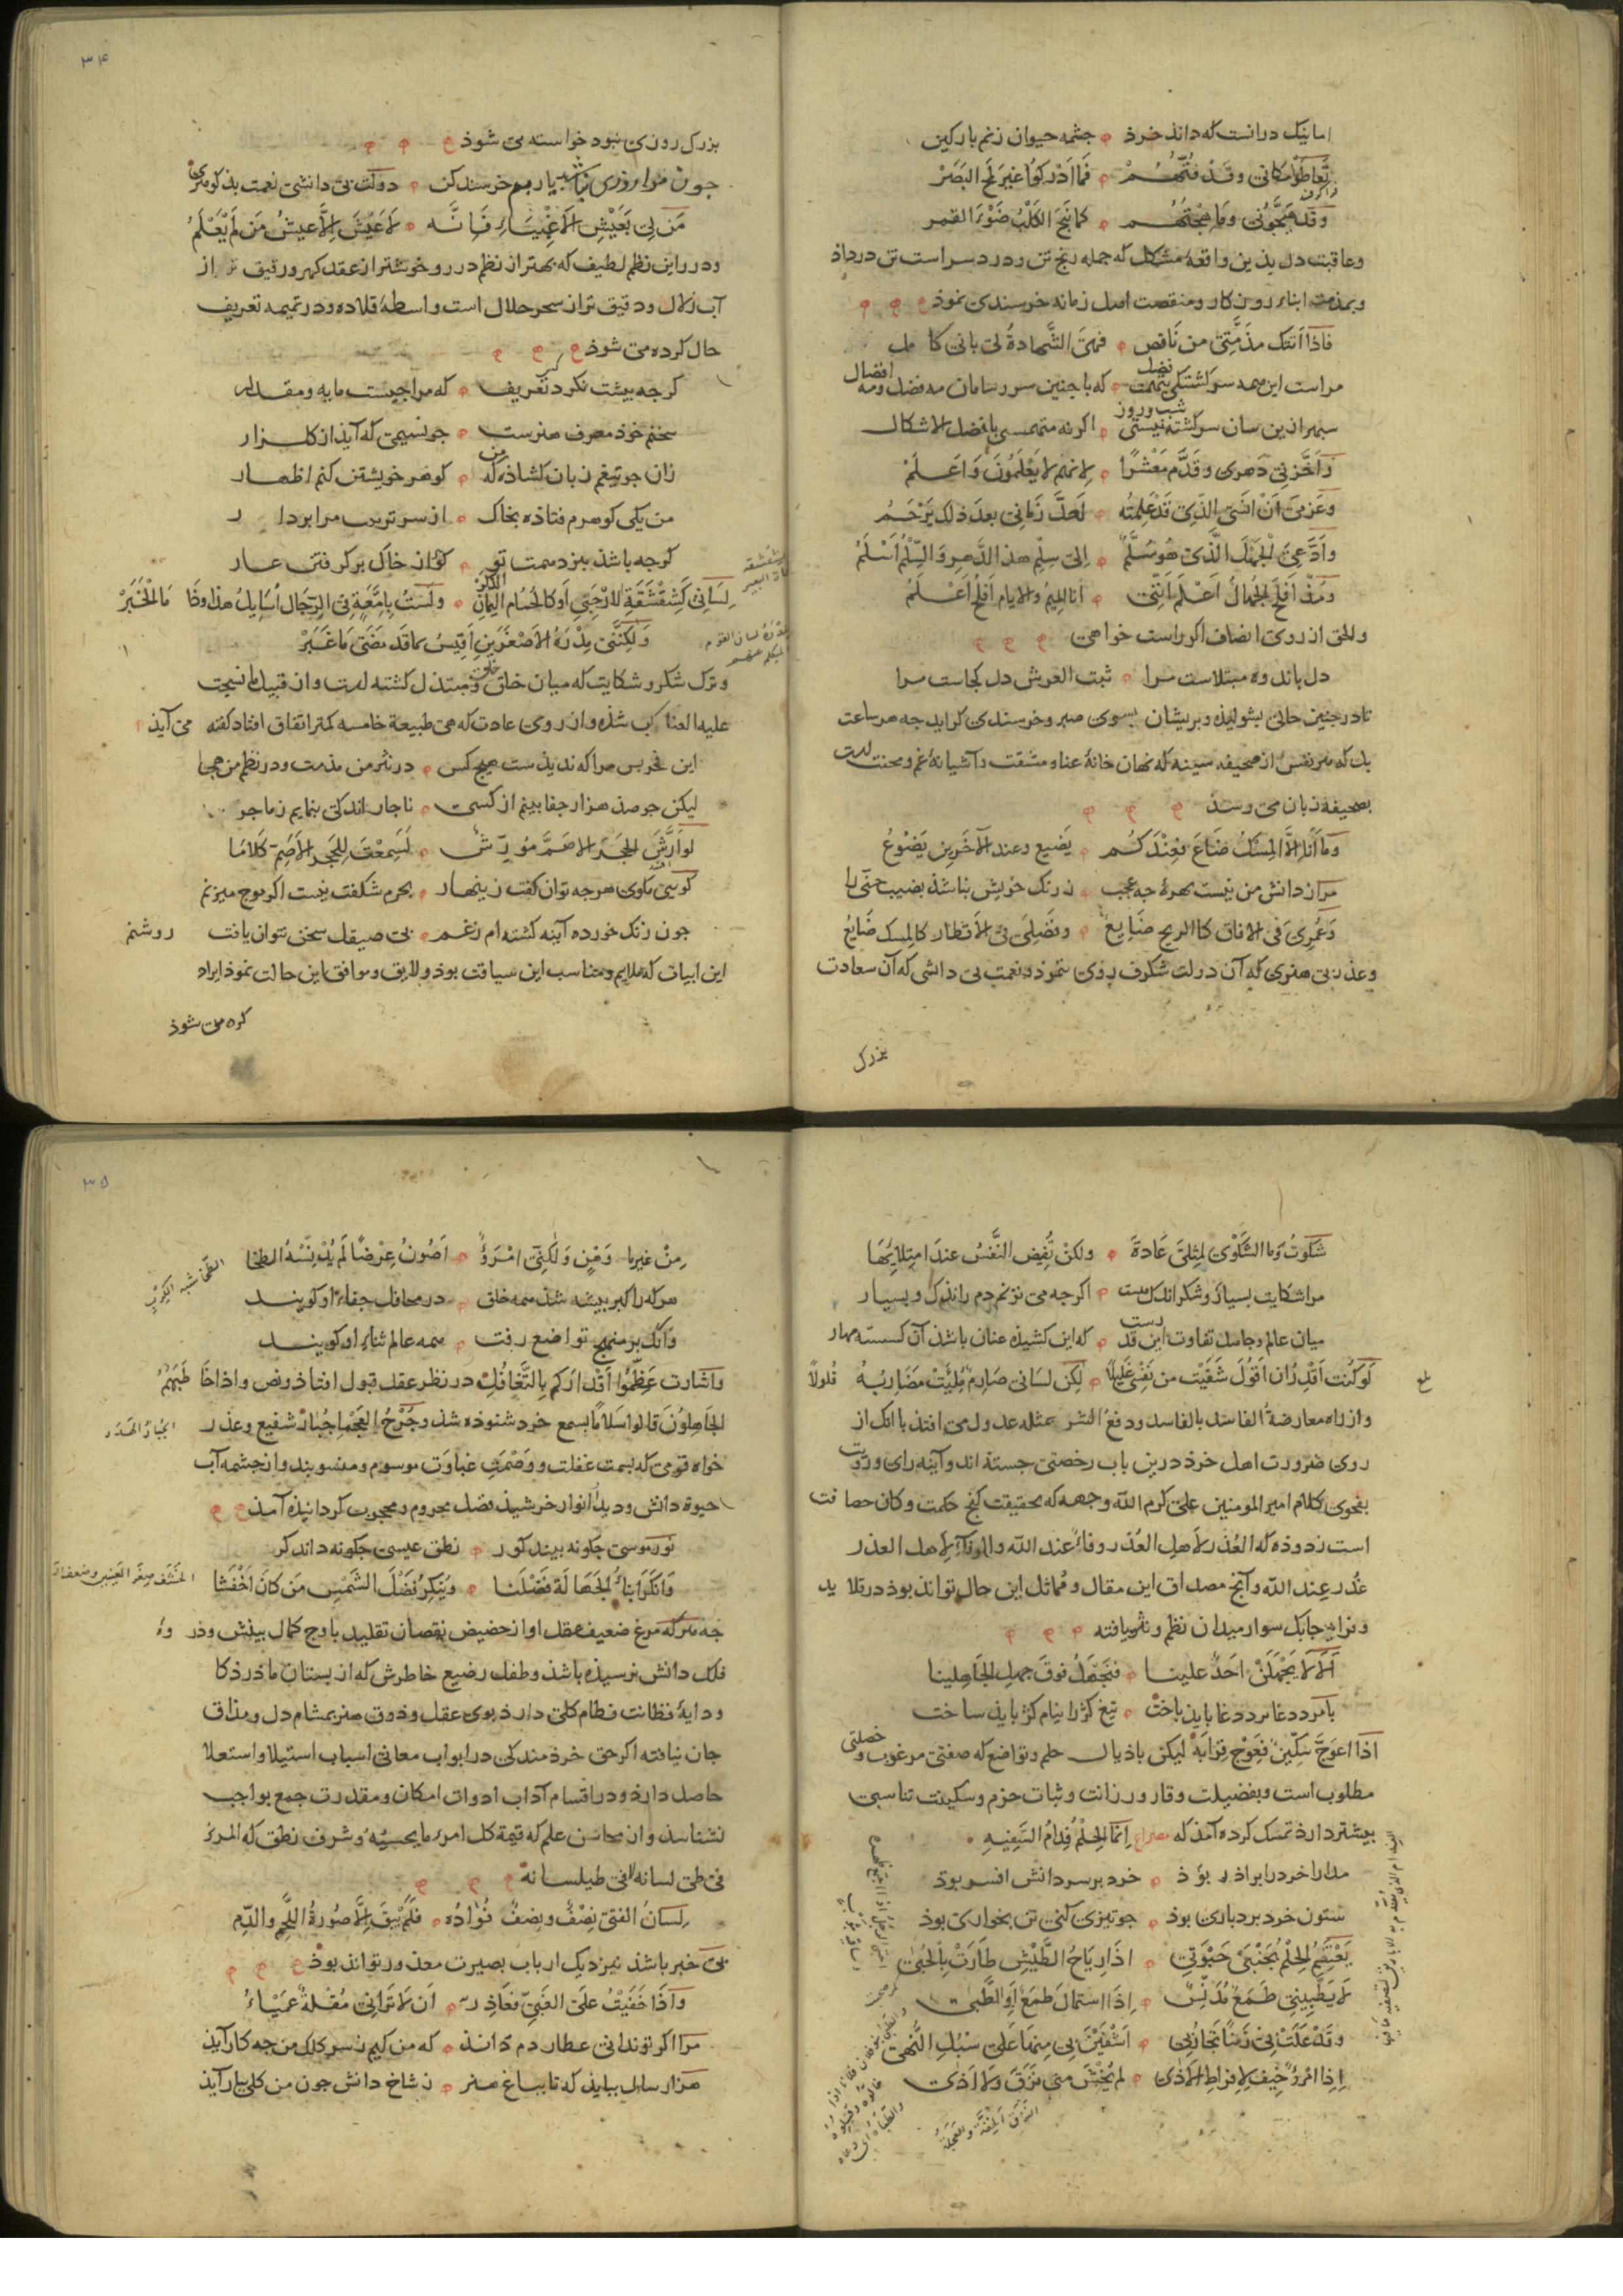 اما نیک درانست که داند خرد جشمه حیوان زنم بارکین
تعاطوا مکانی وقد فتهم فما ادرکوا غیر لمح البصر
وقد نبحونی وما هجتهم کما نبح الکلب ضوء القمر
وعاقبت دل بذین واقعهٔ مشکل که جمله رنج تن ودرد سراست تن درداذ
وبمذمت ابناء روزکار ومنقصت اهل زمانه خرسندی نموذ
فاذا اتتک مذمتی من ناقص فهی الشهادة لی بانی کامل
مراست این همه سرکشتکی که با جنین سروسامان نه فضل ونه افضال
سبهر ازین سان سرکشته نیستی شب وروز اکرنه متهمستی بافضل الاشکال
واخرنی دهری وقدم معشرا لانهم لا یعلمون واعلم
وعزمی ان انسی الذی قد علمته لعل زمانی بعد ذلک یرحم
وادعی الجهل الذی هو سلم الی سلم هذا الدهر والسلم اسلم
ومذ افلح الجهال اعلم اننی انا المیم والایام افلح اعلم
والحق از روی انصاف اکر راست خواهی
دل باندوه مبتلاست مرا ثبت العرش دل کجاست مرا
تا در جنین حالی بشولیذه وبریشان بسوی صبر وخرسندی کراید جه هر ساعت
بل که هر نفس از صحیفه سینه که نهان خانهٔ عنا ومشقت وآشیانهٔ غم ومحنت است
بصحیفهٔ زبان می رسذ
وما انا الا المسک ضاع فعندکم یضیع وعند الاخرین یضوع
مر از دانش من نیست بهرهٔ جه عجب زرنک خویش نباشذ نصیب حنی را
وعمری فی الافاق کالریح ضایع وفضلی فی الاقطار کالمسک ضایع
وعذر بی هنری که آن دولت شکرف روی ننموذ ونعمت بی دانشی که آن سعادت
بزرک
۳۴
بزرک روزی نبود خواسته می شوذ
جون مرا روزی نباشد یا ربم خرسند کن دولت بی دانشی نعمت بذ کوهری
من لی بعیش الاغنیاء فانه لا عیش الا عیش من لم یعلم
ودر راین نظم لطیف که بهتر از نظم درر وخوشتر از عقد کهر ورقیق تر از
آب زلال ودقیق تر از سحر حلال است واسطهٔ قلاده ودر تمیمه تعریف
حال کرده می شوذ
کرجه بیشت نکرد تعریف که مرا جیست مایه ومقدار
سخنم خود معرف هنرست جو نسیمی که آیذ از کلزار
زان جو تیغم زبان کشاذه که من کوهر خویشتن کنم اظهار
من یکی کوهرم فتاذه بخاک از سر تربیت مرا بردار
کرجه باشذ بنزد همت تو کوهر از خاک برکرفتن عار
لسانی کشقشقة الارحبی او کالحسام الیمان الذکر ولست بامعة فی الرجال اسایل هذا وذا ما الخبر
ولکننی مدره الاصغرین اقیس بما قد مضی ما غبر
وترک شکر وشکایت که میان خلق خلق ومبتذل کشته است واز قبیل ما نسجت
علیه العناکب شذه واز روی عادت که هی طبیعة خامسه کمتر اتفاق افتاد کفته می آید
این فخر بس مرا که ندیذست هیج کس در نثر من مذمت ودر نظم من هجا
لیکن جو صذ هزار جفا بینم از کسی ناجار اندکی بنمایم زماجرا
لو ارش الحجر الاصم مورش لسمعت للحجر الاصم کلاما
کوسی مکوی هرجه توان کفت زینهار بحرم شکفت نیست اکر موج میزنم
جون زنک خورده آینه کشته ام زغم بی صیقل سخن نتوان یافت روشنم
این ابیات که ملایم ومناسب این سیاقت بوذ ولایق وموافق این حالت نموذ ایراد
کرده می شوذ
شکوت وما الشکوی لمثلی عادة ولکن تفیض النفس عند امتلایها
مرا شکایت بسیار وشکر اندک نیست اکرجه می نزنم دم زاندک وبسیار
میان عالم وجاهل تفاوت این قدرست که این کشیذه عنان باشذ آن کسسته مهار
لو کنت اقدر ان اقول شفیت من نفسی غلیلا لکن لسانی صارم ملئت مضاربه فلولا
واز راه معارضة الفاسد بالفاسد ودفع الشر بمثله عدول می افتذ با انک از
روی ضرورت اهل خرد درین باب رخصتی جسته اند وآینه رای ورویت
بفحوی کلام امیر المومنین علی کرم الله وجهه که بحقیقت کنج حکمت وکان حصافت
است زدوده که الغدر لاهل الغدر وفاء عند الله والوفاء لاهل الغدر
غدر عند الله وآنج مصداق این مقال ومماثل این حال تواند بوذ در تلاید
وفراید جابک سوار میدان نظم ونثر یافته
الا لا یجهلن احد علینا فنجهل فوق جهل الجاهلینا
با مرد دغا نرد دغا باید باخت تیغ کژ را نیام کژ باید ساخت
اذا اعوج سکین فعوج قرابه لیکن باذیال حلم وتواضع که صفتی مرغوب وخصلتی
مطلوب است وبفضیلت وقار ورزانت وثبات حزم وسکینت تناسبی
بیشتر دارد تمسک کرده آمذ که مصراع انما الحلم فدام السفیه
مدارا خرد را براذر بوذ خرد بر سر دانش افسر بوذ
ستون خرد بردباری بوذ جو تیزی کنی تن بخواری بوذ
یعتصم الحلم بجنبی حبوتی اذا ریاح الطیش طارت بالحبی
لا یطبینی طمع مدنس اذا استمال طمع او اطبی
وقد علت بی رتبا تجاربی اشفین بی منها علی سبل النهی
اذا امرؤ خیف لافراط الاذی لم یخش منی نزق ولا اذی
النزق الخفة والعجلة
۳۵
من غیر ما وهن ولکنی امرؤ اصون عرضا لم یدنسه الطخا
هرکه را کبر بیشه شذ همه خلق در محافل جفاء او کویند
وانک بر منهج تواضع رفت همه عالم ثناء او کویند
واشارت عظموا اقدارکم بالتغافل در نظر عقل قبول افتاذ ونص واذا خاطبهم
الجاهلون قالوا سلاما بسمع خرد شنوذه شذ وجرح العجما جبار شفیع وعذر
خواه قومی که بسمت غفلت ووصمت غباوت موسوم ومنسوبند واز جشمه آب
حیوة دانش ودید انوار خرشیذ فضل محروم ومحجوب کردانیذه آمذ
نور موسی جکونه بیند کور نطق عیسی جکونه داند کر
وانکر ابناء الجهالة فضلنا وینکر فضل الشمس من کان اخفشا
جه هرکه مرغ ضعیف عقل او از حضیض نقصان تقلید باوج کمال بینش وذروهٔ
فلک دانش نرسیذه باشذ وطفل رضیع خاطرش که از بستان ماذر ذکا
ودایهٔ فطانت فطام کلی دارد بوی عقل وذوق هنر بمشام دل ومذاق
جان نیافته اکر حق خردمند کی در ابواب معانی اسباب استیلا واستعلا
حاصل دارد ودر اقسام آداب ادوات امکان ومقدرت جمع بواجب
نشناسذ واز محاسن علم که قیمة کل امرء ما یحسنه وشرف نطق که المرء
فی طی لسانه لا فی طیلسانه
لسان الفتی نصف ونصف فؤاده فلم یبق الا صورة اللحم والدم
بی خبر باشذ نیز دیک ارباب بصیرت معذور تواند بوذ
واذا خفیت علی الغبی فعاذر ان لا ترانی مقلة عمیاء
مرا اکر تو ندانی عطاردم داند که من کیم زسر کلک من جه کار آید
هزار سال بباید که تا بباغ هنر زشاخ دانش جون من کلی ببار آید